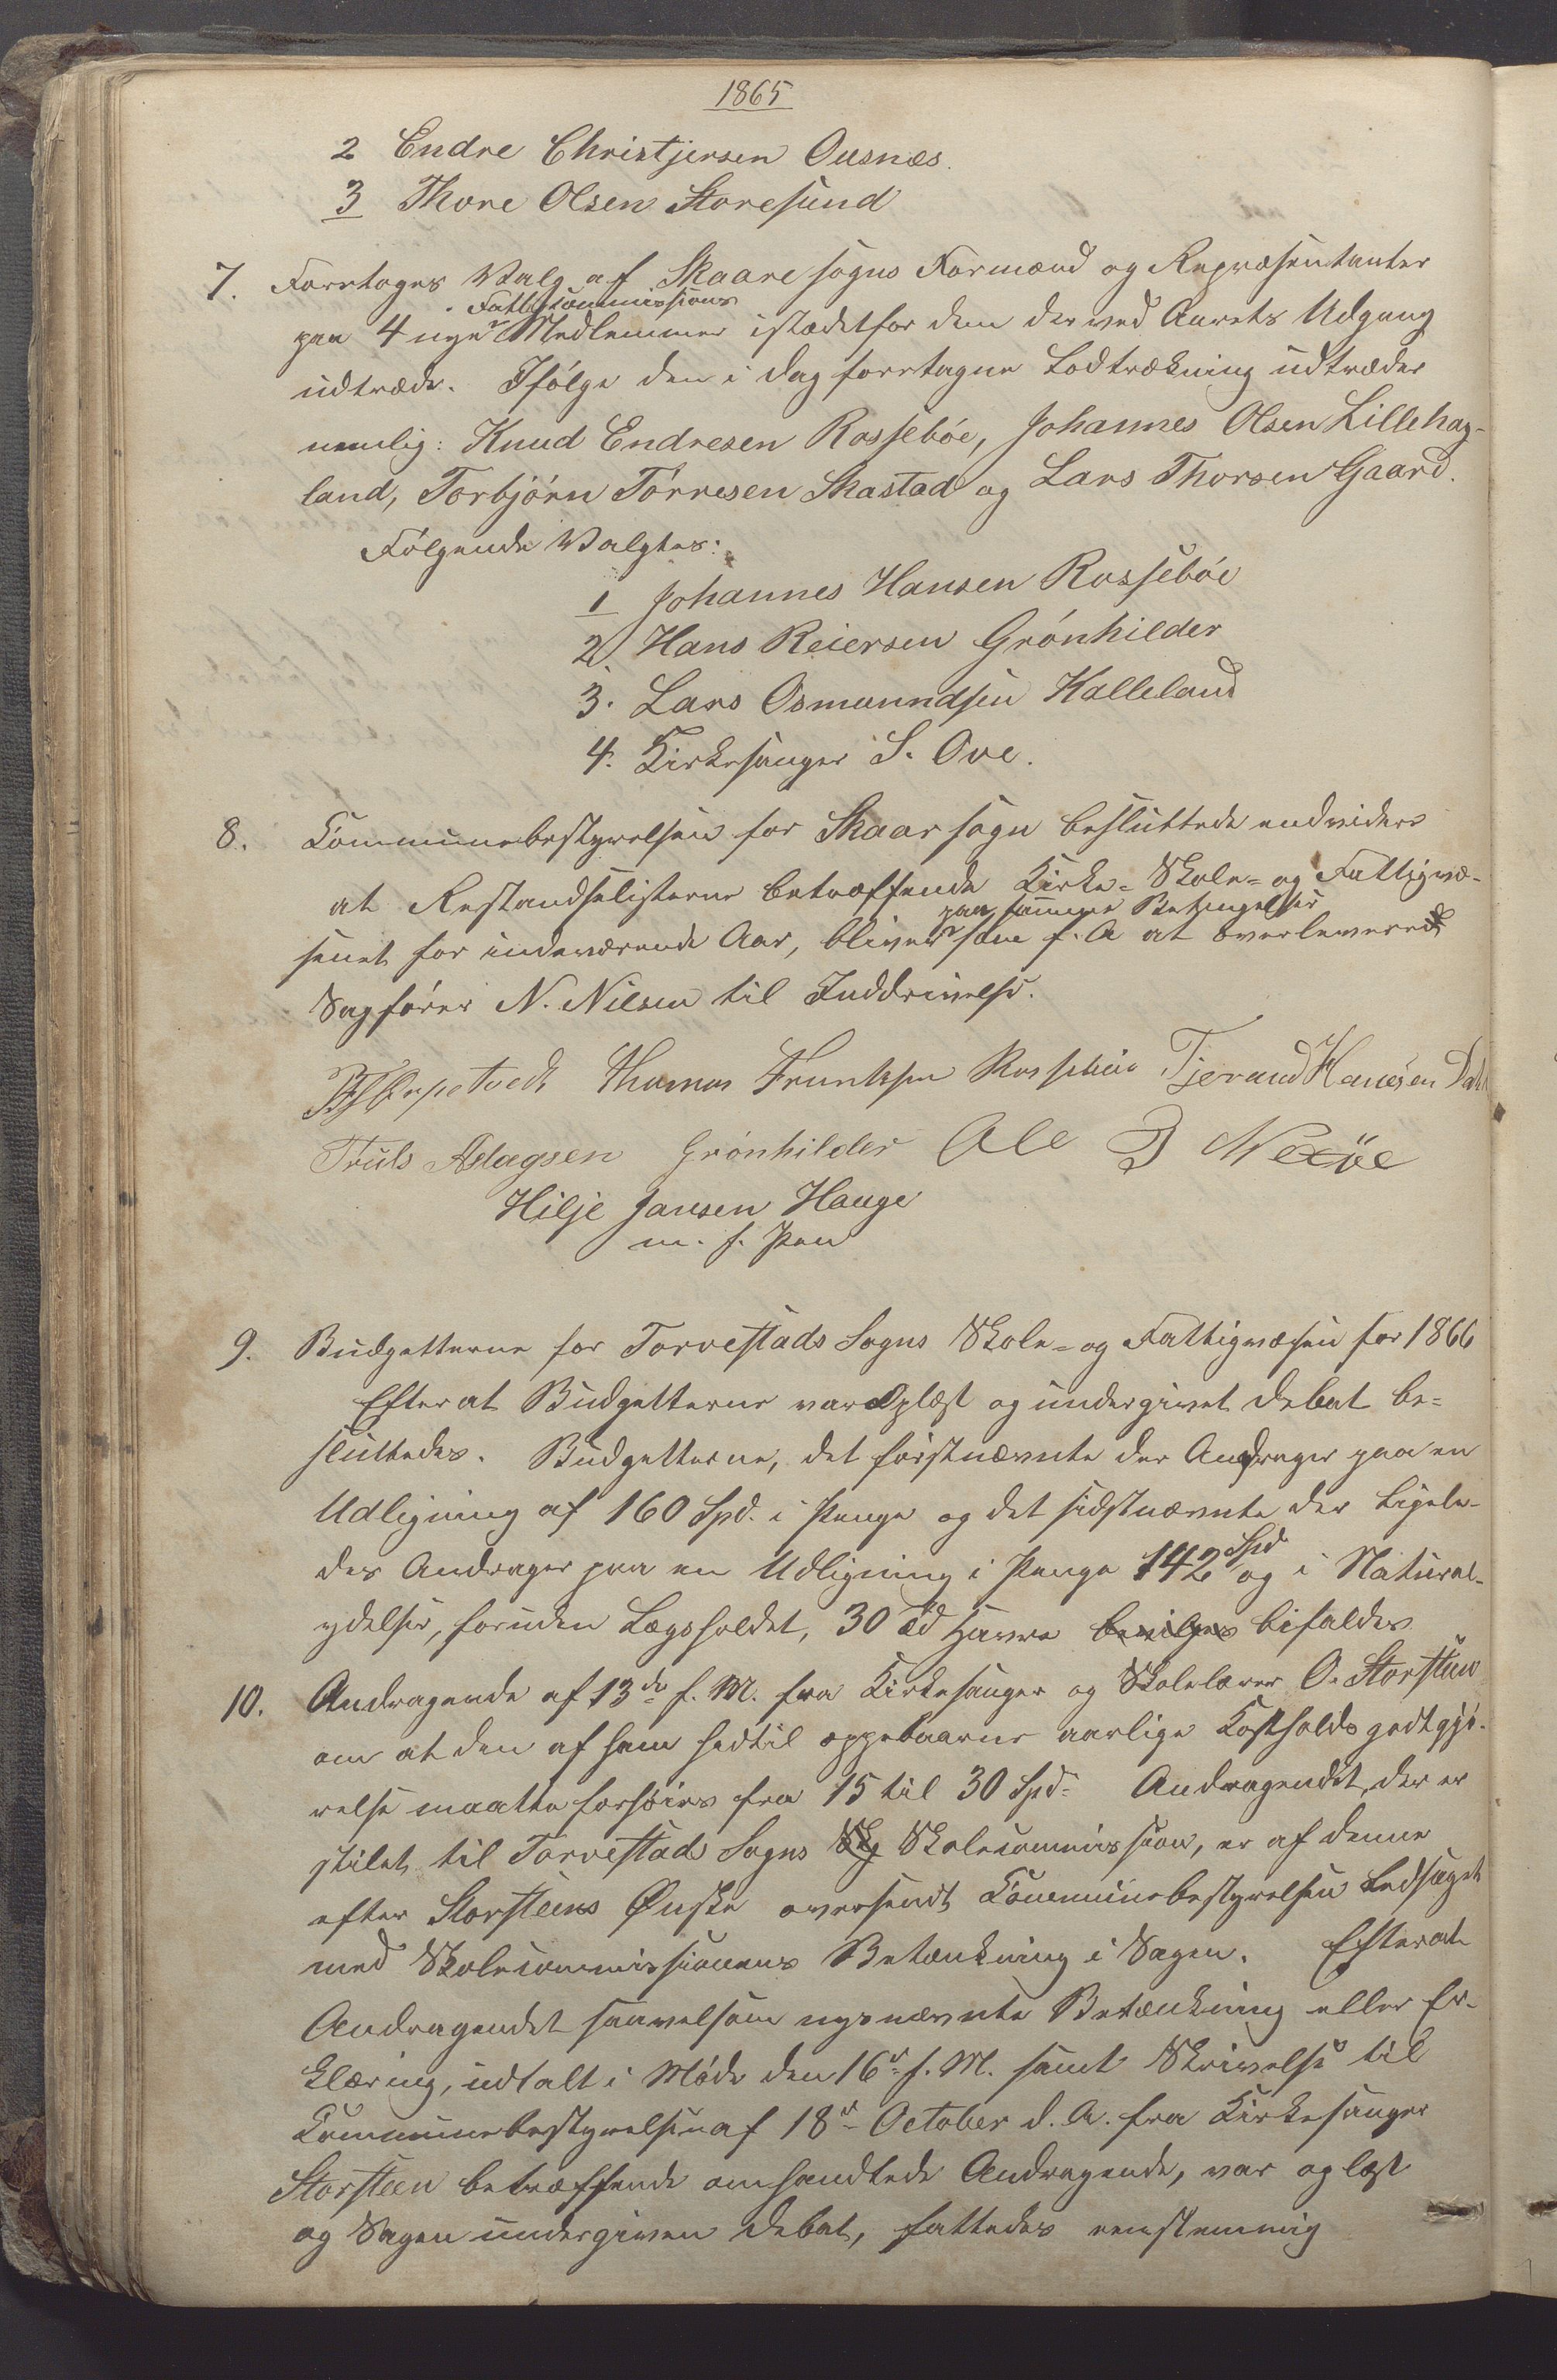 1865
2 Endre Christjersen Ousnæs.
3 Thore Olsen Storesund
7. Foretoges Valg af Skaare sogns Formænd og Repræsentanter
Fattigcommissions
paa 4 nye Medlemmer istædetfor dem der ved Aarets Udgang
udtræde. Ifølge den i dag foretagne Lodtrækning udtræder
nemlig: Knud Endresen Rossebøe, Johannes Olsen Lillehag-
land, Torbjørn Tørresen Skastad og Lars Thorsen Gaard.
Følgende Valgtes:
1 Johannes Hansen Rossebøe
2. Hans Reiersen Grønhilder
3. Lars Osmundsen Halleland
4. Kirkesanger S. Ove.
8. Communebestyrelsen for Skaare sogn besluttede endvidere
at Restandselisterne betræffende Kirke- Skole- og Fattigvæ-
paa samme Betingelser
senet for indeværende Aar, bliver som f. A at overlevere
Sagfører N. Nilsen til Inddrivelse.
Thomas Rossebøe Tjerand Hansen Dahl
Truls Aslagsen Grønhilder Ole B Nexöe
Hilje Jansen Hauge
m. f. Pen
9. Budgetterne for Torvestads Sogns Skole- og Fattigvæsen for 1866
Efterat Budgetterne var Oplæst og undergivet debat be-
sluttedes. Budgetterne, det førstnævnte der Andrager paa en
Udligning af 160 Spd. i Penge og det sidstnævnte der Ligele-
des Andrager paa en Udligning i Penge 142 Spd og i Natural-
ydelser, foruden Lægsholdet, 30 Td Havre bevilges bifaldes
10. Andragende af 13de f. M. fra Kirkesanger og Skolelærer O. Storsteen
om at den af ham hedtil oppebaarne aarlige Kostholdsgodtgjø-
relse maatte forhøies fra 15 til 30 Spd. Andragendet, der er
stilet til Torvestads Sogns Skolecommission, er af denne
efter Storsteens Ønske oversendt Communebestyrelsen Ledsaget
med Skolecommissionens Betænkning i Sagen. Efterat
Andragendet saavelsom nysnævnte Betænkning eller Er-
klæring, udtalt i Møde den 16de f. M. samt Skrivelse til
Communebestyrelsen af 18de October d. A. fra Kirkesanger
Storsteen betræffende omhandlede Andragende, var oplæst
og Sagen undergiven debat, fattedes eenstemmig